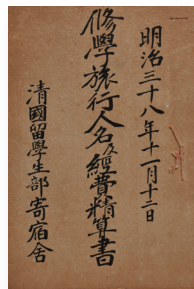 明治三十八年十一月十二日
修學旅行人名及經費精算書
清國留學生部寄宿舍